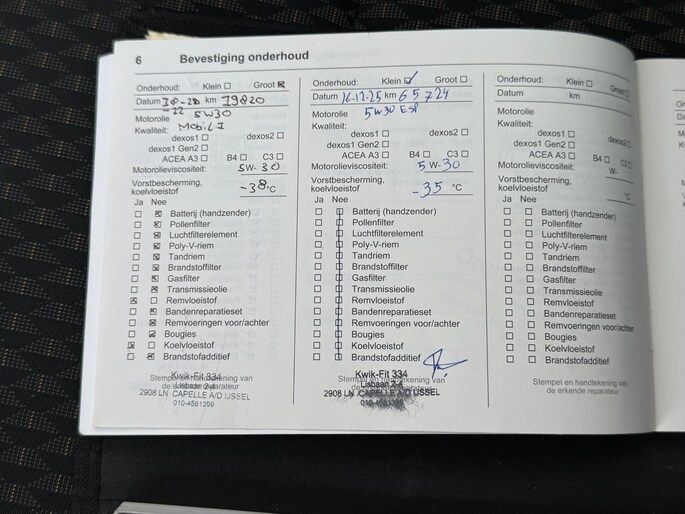 6 Bevestiging onderhoud
Onderhoud: Klein ☐ Groot ☒
Datum km 79820
22 5W30
Motorolie
Kwaliteit: Mobil 1
dexos1 ☐ dexos2 ☐
dexos1 Gen2 ☐
ACEA A3 ☐ B4 ☐ C3 ☐
Motorolieviscositeit: 5W-30
Vorstbescherming,
koelvloeistof -38 °C
Ja Nee
☐ ☒ Batterij (handzender)
☐ ☒ Pollenfilter
☐ ☒ Luchtfilterelement
☐ ☒ Poly-V-riem
☐ ☒ Tandriem
☐ ☒ Brandstoffilter
☐ ☒ Gasfilter
☐ ☒ Transmissieolie
☒ ☐ Remvloeistof
☐ ☒ Bandenreparatieset
☐ ☒ Remvoeringen voor/achter
☐ ☒ Bougies
☒ ☐ Koelvloeistof
☐ ☒ Brandstofadditief
Kwik-Fit 334
Stempel en handtekening van
Lisbaan 2-4
de erkende reparateur
2908 LN CAPELLE A/D IJSSEL
010-4581299
Onderhoud: Klein ☑ Groot ☐
Datum 16-12-25 km 65724
Motorolie 5W30 ESP
Kwaliteit:
dexos1 ☐ dexos2 ☐
dexos1 Gen2 ☐
ACEA A3 ☐ B4 ☐ C3 ☐
Motorolieviscositeit: 5W-30
Vorstbescherming,
koelvloeistof -35 °C
Ja Nee
☐ ☐ Batterij (handzender)
☐ ☐ Pollenfilter
☐ ☐ Luchtfilterelement
☐ ☐ Poly-V-riem
☐ ☐ Tandriem
☐ ☐ Brandstoffilter
☐ ☐ Gasfilter
☐ ☐ Transmissieolie
☐ ☐ Remvloeistof
☐ ☐ Bandenreparatieset
☐ ☐ Remvoeringen voor/achter
☐ ☐ Bougies
☐ ☐ Koelvloeistof
☐ ☐ Brandstofadditief
Kwik-Fit 334
Stempel en handtekening van
Lisbaan 2-4
2908 LN CAPELLE A/D IJSSEL
010-4581299
Onderhoud: Klein ☐ Groot ☐
Datum km
Motorolie
Kwaliteit:
dexos1 ☐ dexos2 ☐
dexos1 Gen2 ☐
ACEA A3 ☐ B4 ☐ C3 ☐
Motorolieviscositeit: W-
Vorstbescherming,
koelvloeistof °C
Ja Nee
☐ ☐ Batterij (handzender)
☐ ☐ Pollenfilter
☐ ☐ Luchtfilterelement
☐ ☐ Poly-V-riem
☐ ☐ Tandriem
☐ ☐ Brandstoffilter
☐ ☐ Gasfilter
☐ ☐ Transmissieolie
☐ ☐ Remvloeistof
☐ ☐ Bandenreparatieset
☐ ☐ Remvoeringen voor/achter
☐ ☐ Bougies
☐ ☐ Koelvloeistof
☐ ☐ Brandstofadditief
Stempel en handtekening van
de erkende reparateur